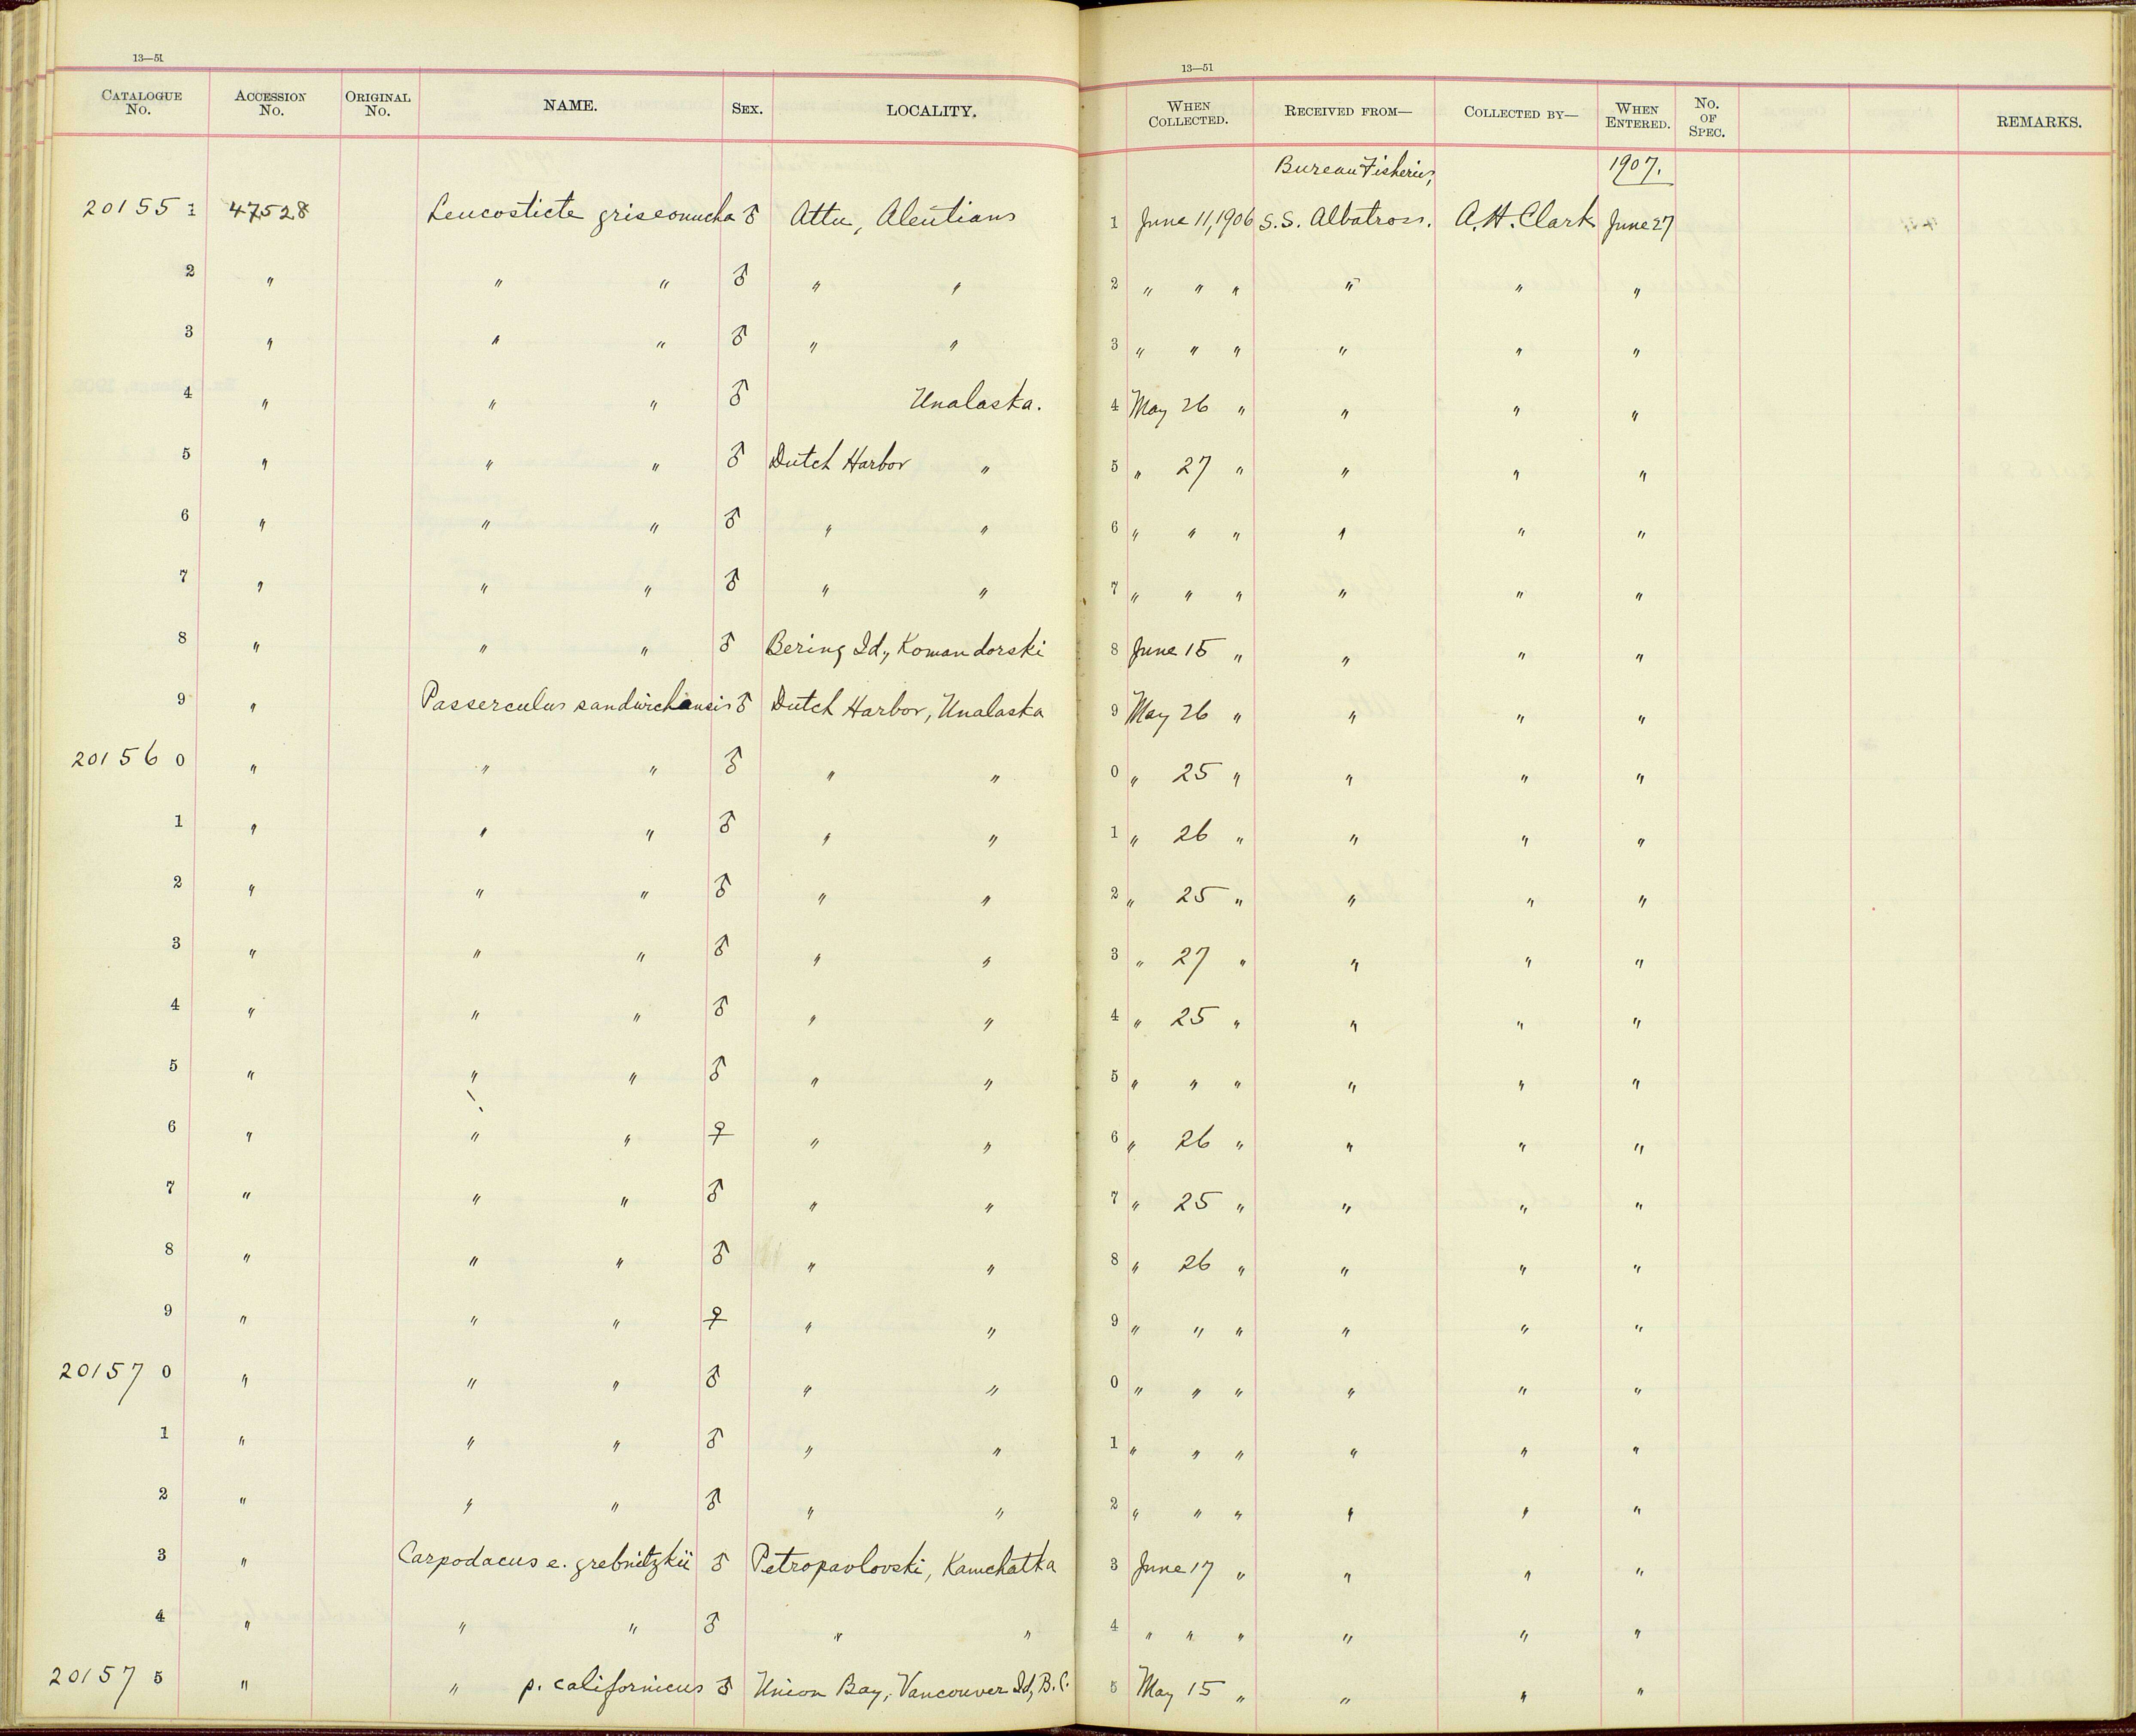 13—51
13—51
CATALOGUE No. ACCESSION No. ORIGINAL No. NAME. SEX. LOCALITY. WHEN COLLECTED. RECEIVED FROM— COLLECTED BY— WHEN ENTERED. No. OF SPEC. REMARKS.
Bureau Fisheries, 1907.
20155 1 47528 Leucosticte griseonucha ♂ Attu, Aleutians 1 June 11, 1906 S.S. Albatross. A.H. Clark June 27
2 " " " ♂ " " 2 " " " " " "
3 " " " ♂ " " 3 " " " " " "
4 " " " ♂ Unalaska. 4 May 26 " " " "
5 " " " ♂ Dutch Harbor " 5 " 27 " " " "
6 " " " ♂ " " 6 " " " " " "
7 " " " ♂ " " 7 " " " " " "
8 " " " ♂ Bering Id., Komandorski 8 June 15 " " " "
9 " Passerculus sandwichensis ♂ Dutch Harbor, Unalaska 9 May 26 " " " "
20156 0 " " " ♂ " " 0 " 25 " " " "
1 " " " ♂ " " 1 " 26 " " " "
2 " " " ♂ " " 2 " 25 " " " "
3 " " " ♂ " " 3 " 27 " " " "
4 " " " ♂ " " 4 " 25 " " " "
5 " " " ♂ " " 5 " " " " " "
6 " " " ♀ " " 6 " 26 " " " "
7 " " " ♂ " " 7 " 25 " " " "
8 " " " ♂ " " 8 " 26 " " " "
9 " " " ♀ " " 9 " " " " " "
20157 0 " " " ♂ " " 0 " " " " " "
1 " " " ♂ " " 1 " " " " " "
2 " " " ♂ " " 2 " " " " " "
3 " Carpodacus e. grebnitzkii ♂ Petropavlovski, Kamchatka 3 June 17 " " " "
4 " " " ♂ " " 4 " " " " " "
20157 5 " " p. californicus ♂ Union Bay, Vancouver Id, B.C. 5 May 15 " " " "